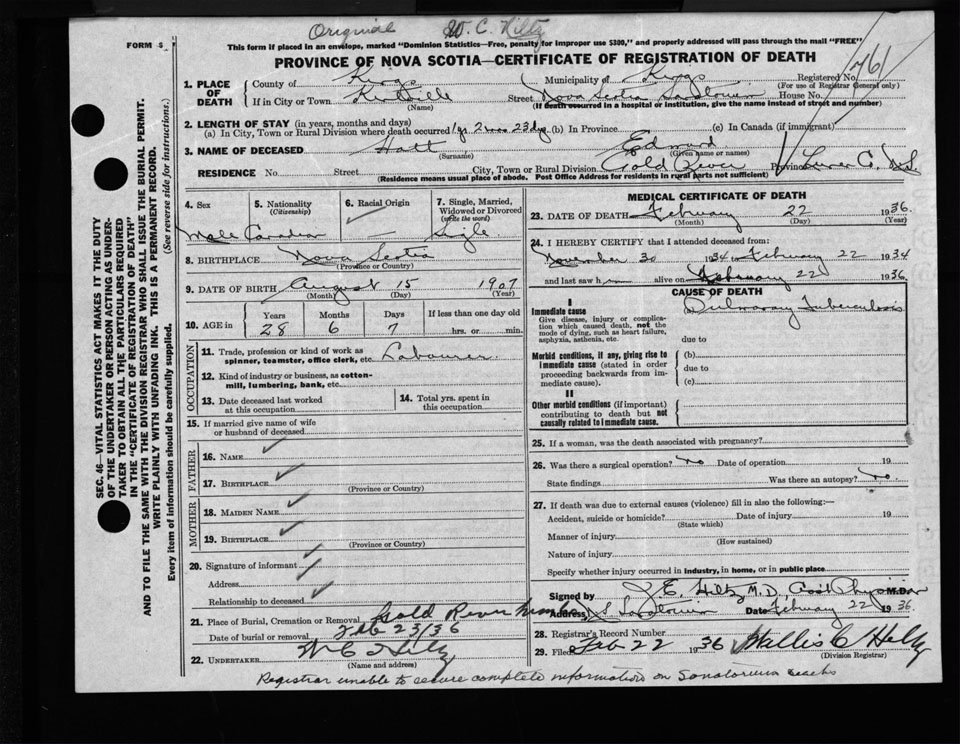 Original W. C. Hiltz
FORM 8
This form if placed in an envelope, marked "Dominion Statistics—Free, penalty for improper use $300," and properly addressed will pass through the mail "FREE"
PROVINCE OF NOVA SCOTIA—CERTIFICATE OF REGISTRATION OF DEATH
1. PLACE OF DEATH
County of Kings Municipality of Kings Registered No. 761
(For use of Registrar General only)
If in City or Town Kentville Street Nova Scotia Sanatorium House No.
(Name) (If death occurred in a hospital or institution, give the name instead of street and number)
2. LENGTH OF STAY (in years, months and days)
(a) In City, Town or Rural Division where death occurred 1 yr 2 mos 23 dys (b) In Province (c) In Canada (if immigrant)
3. NAME OF DECEASED Hatt Edward
(Surname) (Given name or names)
RESIDENCE No. Street City, Town or Rural Division Gold River Province Lunen Co. N.S.
(Residence means usual place of abode. Post Office Address for residents in rural parts not sufficient)
4. Sex 5. Nationality (Citizenship) 6. Racial Origin 7. Single, Married, Widowed or Divorced (write the word)
Male Canadian — Single
8. BIRTHPLACE Nova Scotia
(Province or Country)
9. DATE OF BIRTH August 15 1907
(Month) (Day) (Year)
10. AGE in Years Months Days If less than one day old
28 6 7 hrs. or min.
OCCUPATION
11. Trade, profession or kind of work as spinner, teamster, office clerk, etc. Labourer
12. Kind of industry or business, as cotton-mill, lumbering, bank, etc.
13. Date deceased last worked at this occupation
14. Total yrs. spent in this occupation
15. If married give name of wife or husband of deceased
FATHER
16. NAME
17. BIRTHPLACE
(Province or Country)
MOTHER
18. MAIDEN NAME
19. BIRTHPLACE
(Province or Country)
20. Signature of informant
Address
Relationship to deceased
21. Place of Burial, Cremation or Removal Gold River
Date of burial or removal Feb 23/36
22. UNDERTAKER W C Hiltz
(Name and address)
MEDICAL CERTIFICATE OF DEATH
23. DATE OF DEATH February 22 1936
(Month) (Day) (Year)
24. I HEREBY CERTIFY that I attended deceased from:
November 30 1934 to February 22 1934
and last saw h im alive on February 22 1936
CAUSE OF DEATH
I
Immediate cause Pulmonary Tuberculosis
Give disease, injury or complication which caused death, not the mode of dying, such as heart failure, asphyxia, asthenia, etc.
due to
Morbid conditions, if any, giving rise to immediate cause (stated in order proceeding backwards from immediate cause).
(b)
due to
(c)
II
Other morbid conditions (if important) contributing to death but not causally related to immediate cause.
25. If a woman, was the death associated with pregnancy?
26. Was there a surgical operation? no Date of operation 19
State findings Was there an autopsy? no
27. If death was due to external causes (violence) fill in also the following:—
Accident, suicide or homicide? Date of injury 19
(State which)
Manner of injury
(How sustained)
Nature of injury
Specify whether injury occurred in industry, in home, or in public place
Signed by J. E. Hiltz M.D., Asst Physician M.D.
Address N.S. Sanatorium Date February 22 1936.
28. Registrar's Record Number
29. Filed Feb 22 1936 Wallis C Hiltz
(Division Registrar)
Registrar unable to secure complete information on Sanatorium
SEC. 46—VITAL STATISTICS ACT MAKES IT THE DUTY
OF THE UNDERTAKER OR PERSON ACTING AS UNDER-
TAKER TO OBTAIN ALL THE PARTICULARS REQUIRED
IN THE "CERTIFICATE OF REGISTRATION OF DEATH"
AND TO FILE THE SAME WITH THE DIVISION REGISTRAR WHO SHALL ISSUE THE BURIAL PERMIT.
WRITE PLAINLY WITH UNFADING INK. THIS IS A PERMANENT RECORD.
Every item of information should be carefully supplied. (See reverse side for instructions.)